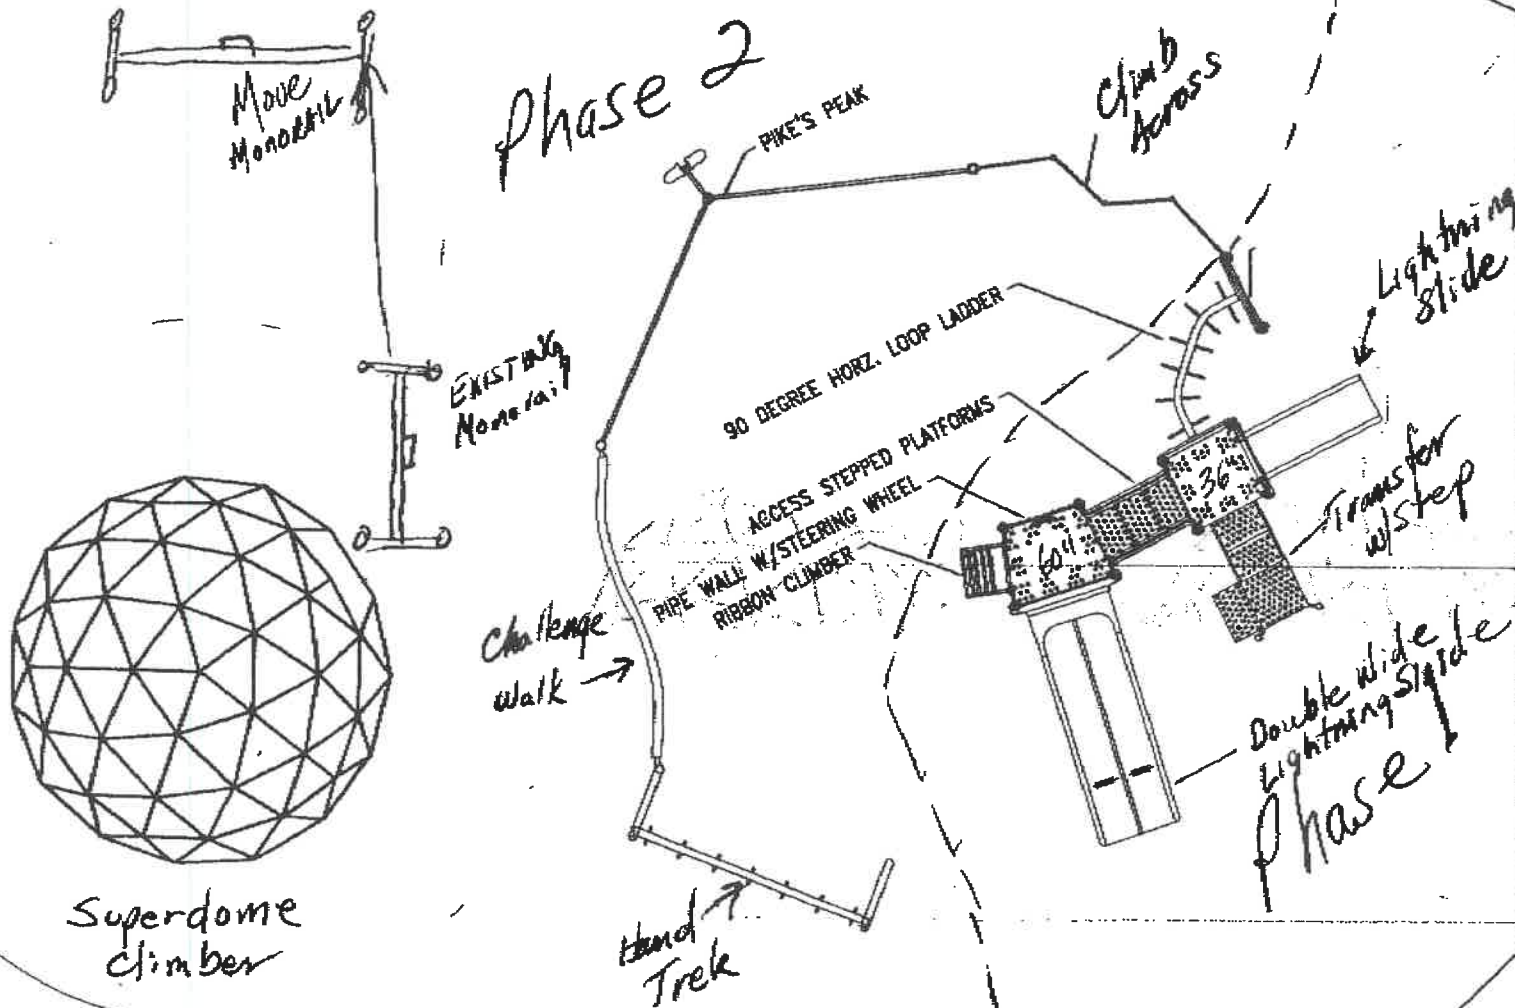 Phase 2
Move
Monorail
PIKE'S PEAK
Climb
Across
Lightning
Slide
Existing
Monorail
90 DEGREE HORZ. LOOP LADDER
ACCESS STEPPED PLATFORMS
PIPE WALL W/STEERING WHEEL
RIBBON CLIMBER
36"
60"
Transfer
w/step
Challenge
Walk
Double Wide
Lightning Slide
Phase 1
Superdome
Climber
Hand
Trek